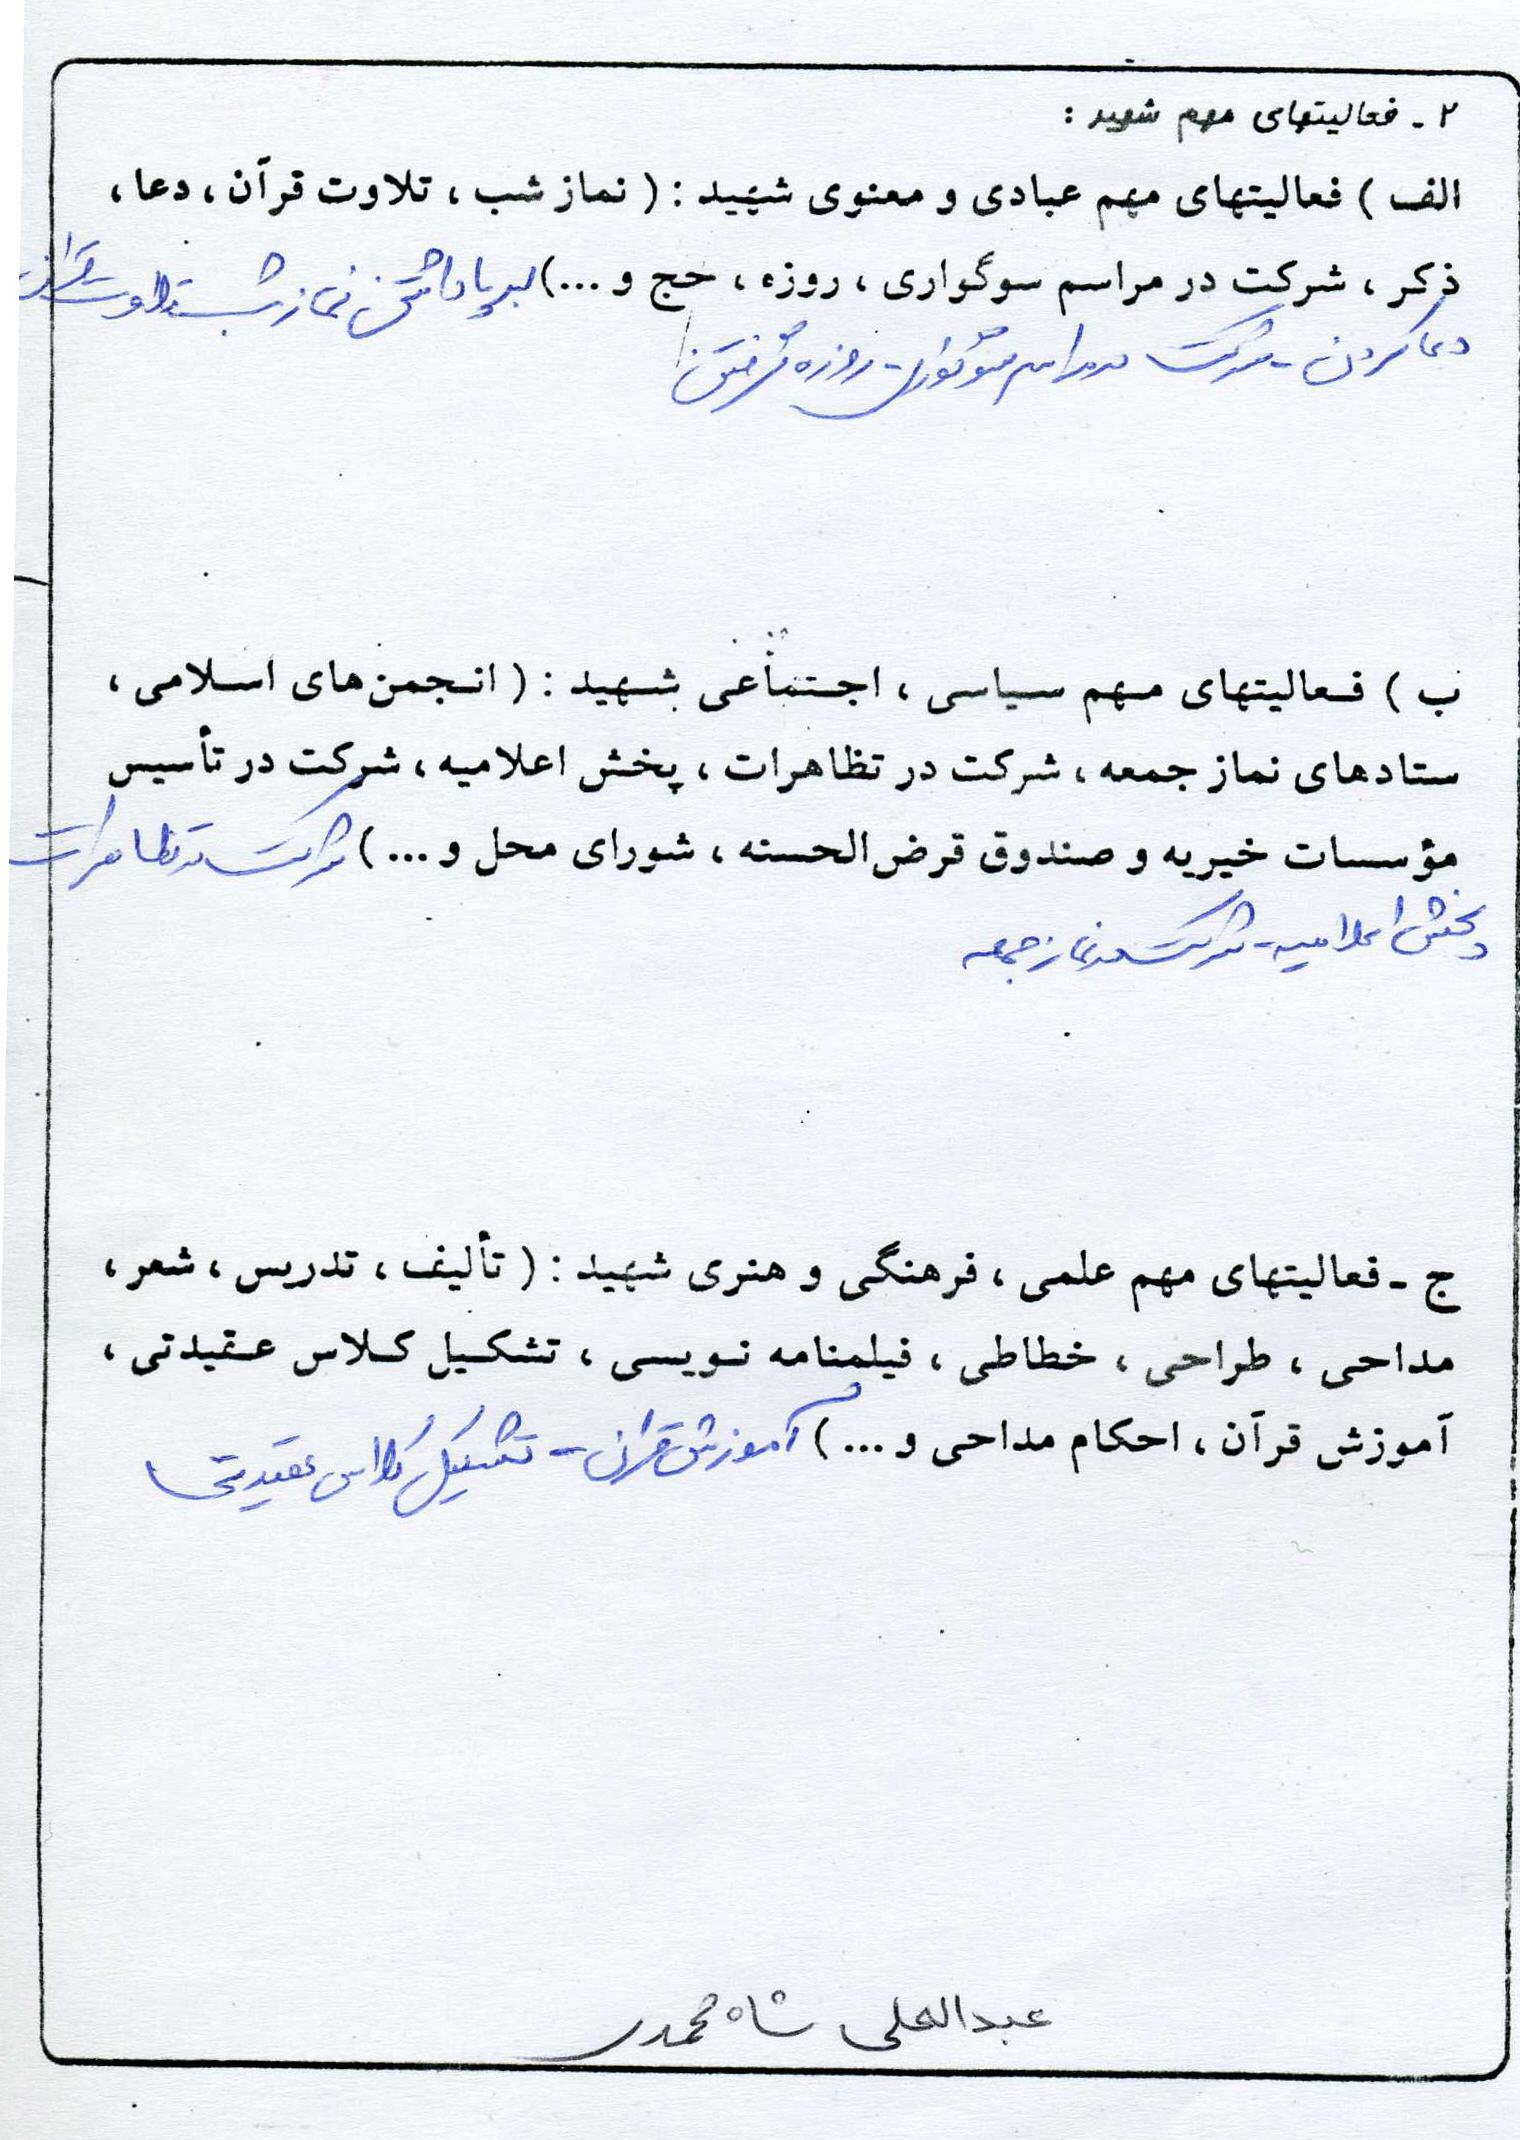 ۲ - فعالیتهای مهم شهید :
الف ) فعالیتهای مهم عبادی و معنوی شهید : ( نماز شب ، تلاوت قرآن ، دعا ،
ذکر ، شرکت در مراسم سوگواری ، روزه ، حج و ...) برپا داشتن نماز شب تلاوت قرآن
دعا کردن - شرکت در مراسم سوگواری - روزه گرفتن
ب ) فعالیتهای مهم سیاسی ، اجتماعی شهید : ( انجمن های اسلامی ،
ستادهای نماز جمعه ، شرکت در تظاهرات ، پخش اعلامیه ، شرکت در تأسیس
مؤسسات خیریه و صندوق قرض الحسنه ، شورای محل و ... ) شرکت در تظاهرات
پخش اعلامیه - شرکت در نماز جمعه
ج - فعالیتهای مهم علمی ، فرهنگی و هنری شهید : ( تألیف ، تدریس ، شعر ،
مداحی ، طراحی ، خطاطی ، فیلمنامه نویسی ، تشکیل کلاس عقیدتی ،
آموزش قرآن ، احکام مداحی و ... ) آموزش قرآن - تشکیل کلاس عقیدتی
عبدالعلی شاه محمدی